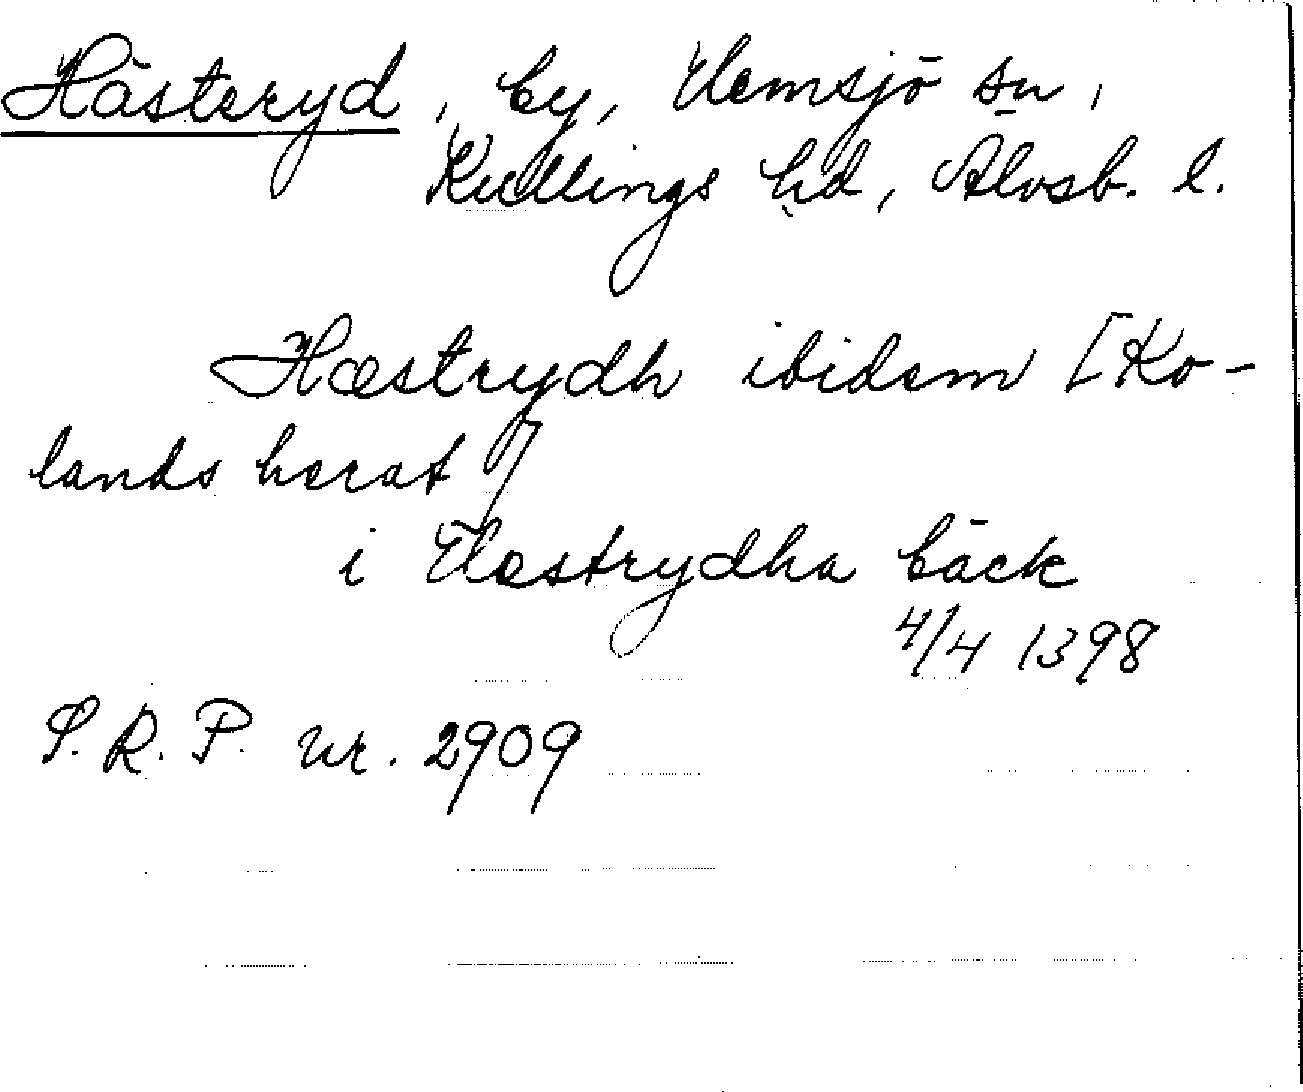 Hästeryd, by, Hemsjö sn,
Kullings hd, Älvsb. l.
Hæstrydh ibidem [Ko-
lands herat]
i Hæstrydha bäck
4/4 1398
S.R.P. nr. 2909